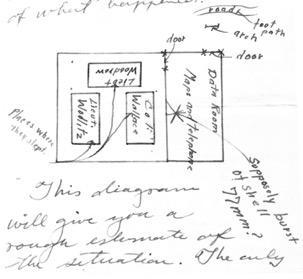 of what happened.
roads
foot
path
arch
door
door
Lieut
Woodrow
Lieut.
Wodlitz
Col.
Wallace
Maps and telephone
Data Room
Places where
they slept
Supposely burst
of shell
77mm?
This diagram
will give you a
rough estimate of
the situation. The only